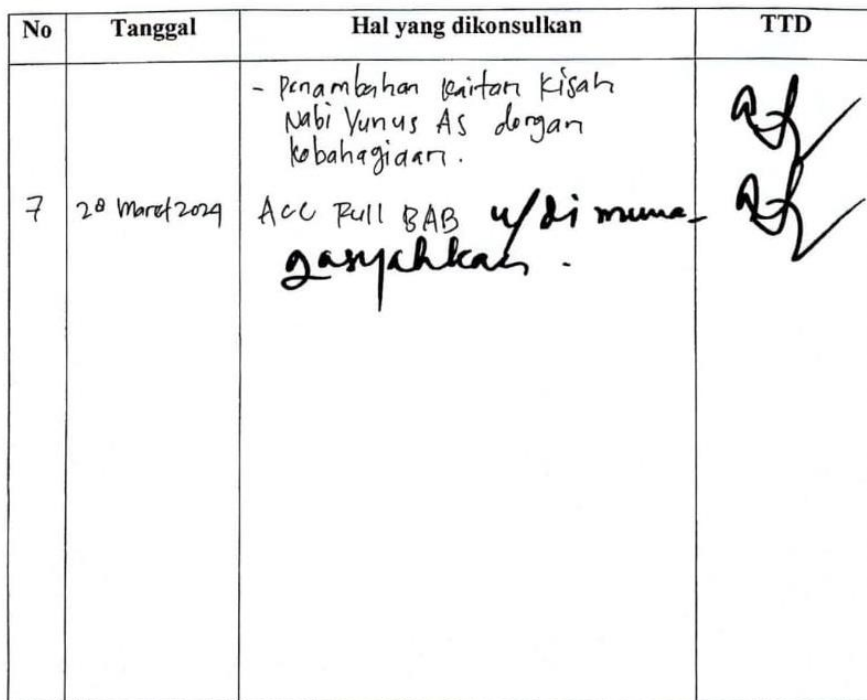 No Tanggal Hal yang dikonsulkan TTD
- Penambahan kaitan kisah
Nabi Yunus As dengan
kebahagiaan.
7 28 Maret 2024 Acc Full BAB u/ di muna-
qasyahkan.